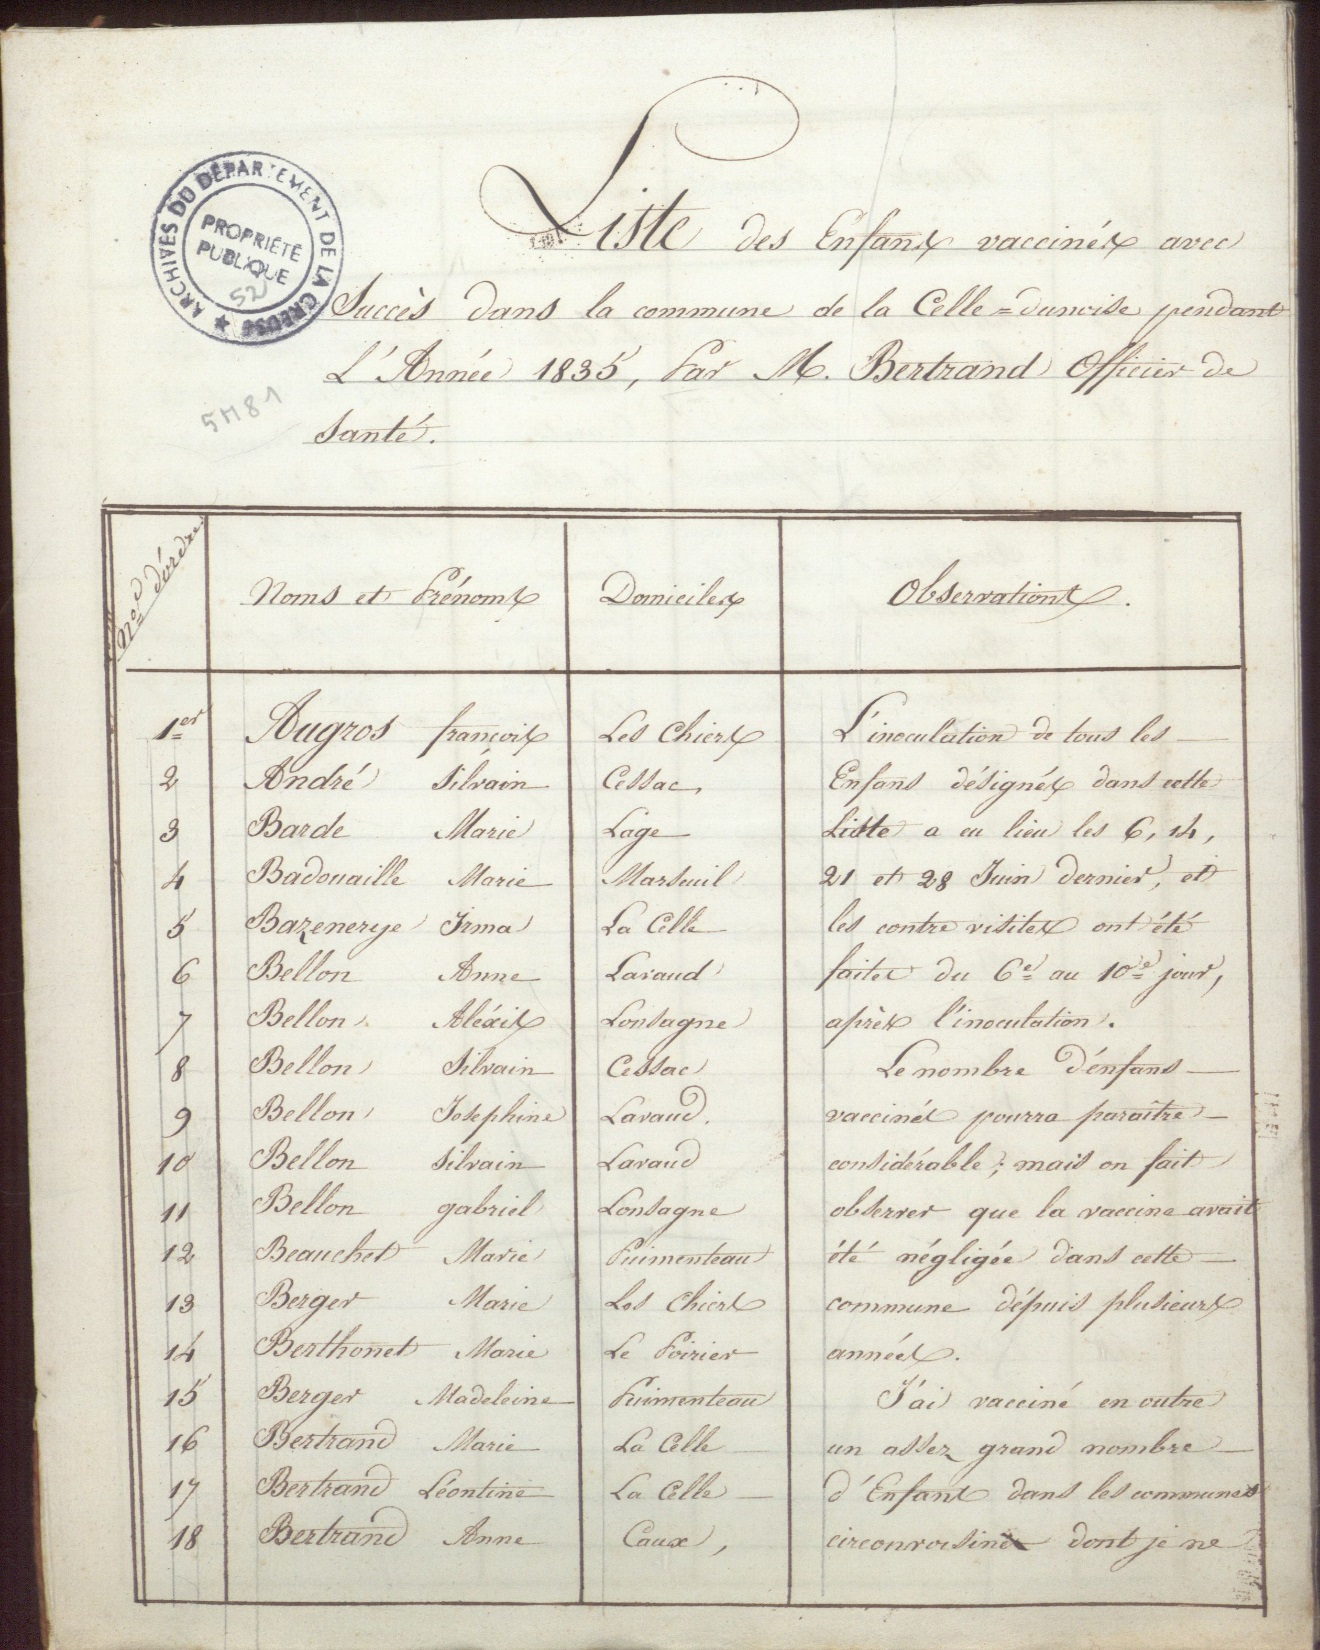 ARCHIVES DU DÉPARTEMENT DE LA CREUSE
PROPRIÉTÉ
PUBLIQUE
52
5M81
Liste des Enfans vaccinés avec
Succès dans la commune de la Celle=dunoise pendant
L'Année 1835, Par M. Bertrand Officier de
santé.
Nos d'ordre. Noms et Prénoms Domiciles Observations.
1er Augros françois Les Chiers L'inoculation de tous les
2 André Silvain Cessac, Enfans désignés dans cette
3 Barde Marie Lage Liste a eu lieu les 6, 14,
4 Badouaille Marie Marseuil 21 et 28 Juin dernier, et
5 Bazenerye Irma La Celle les contre visites ont été
6 Bellon Anne Lavaud faites du 6e au 10e jour,
7 Bellon Aléxis Lonsagne après l'inoculation.
8 Bellon Silvain Cessac Le nombre d'énfans
9 Bellon Josephine Lavaud. vaccinés pourra paraître
10 Bellon Silvain Lavaud considérable; mais on fait
11 Bellon gabriel Lonsagne observer que la vaccine avait
12 Beauchet Marie Puimenteau été négligée dans cette
13 Berger Marie Les Chiers commune dépuis plusieurs
14 Berthonet Marie Le Poirier années.
15 Berger Madeleine Puimenteau J'ai vacciné en outre
16 Bertrand Marie La Celle un assez grand nombre
17 Bertrand Léontine La Celle d'Enfans dans les communes
18 Bertrand Anne Caux, circonvoisines dont je ne